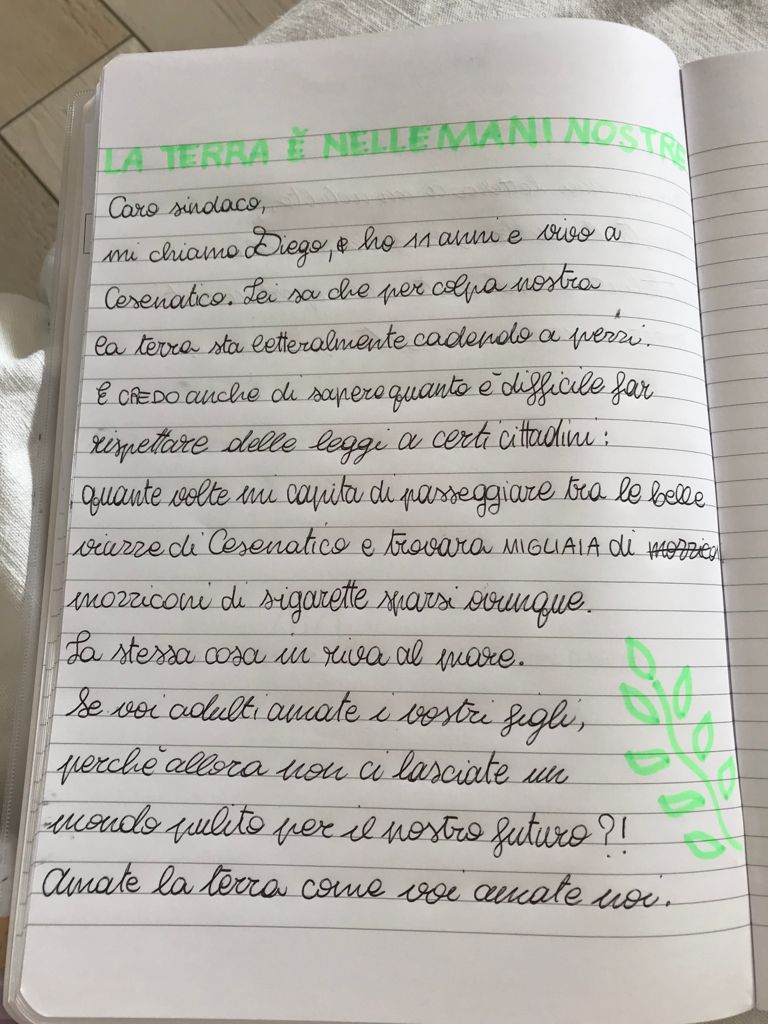 LA TERRA È NELLE MANI NOSTRE
Caro sindaco,
mi chiamo Diego, e ho 11 anni e vivo a
Cesenatico. Lei sa che per colpa nostra
la terra sta letteralmente cadendo a pezzi.
E CREDO anche di sapere quanto è difficile far
rispettare delle leggi a certi cittadini:
quante volte mi capita di passeggiare tra le belle
viuzze di Cesenatico e trovara MIGLIAIA di
mozziconi di sigarette sparsi ovunque.
La stessa cosa in riva al mare.
Se voi adulti amate i vostri figli,
perchè allora non ci lasciate un
mondo pulito per il nostro futuro?!
Amate la terra come voi amate noi.